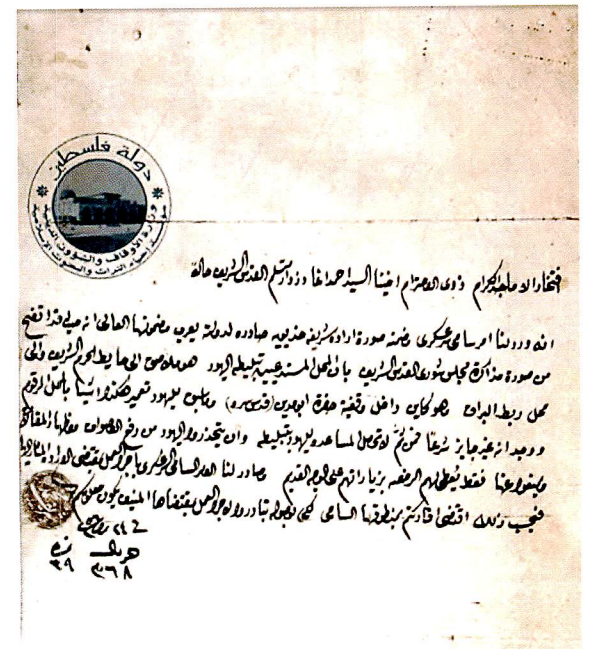 دولة فلسطين
وزارة الأوقاف والشؤون الدينية
مؤسسة إحياء التراث والبحوث الإسلامية
افتخار الاماجد الكرام ذوي الاحترام اخينا السيد احمد اغا دزدار متسلم القدس الشريف حالا
انه ورد لنا امر سامي سر عسكري مضمنه صورة ارادة شريفة خديوية صادره لدولته يعرب مضمونها العالي انه حيث قد اتضح
من صورة مذاكرة مجلس شورى القدس الشريف بان المحل المستدعيين تبليطه اليهود هو ملاصق الى حايط الحرم الشريف والى
محل ربط البراق وهو كاين داخل وقفية حضرة ابو مدين (قدس سره) وما سبق لليهود تعمير هكذا اشيا بالمحل المرقوم
ووجد انه غير جايز شرعا فمن ثم لا تحصل المساعده لليهود بتبليطه وان يتحذروا اليهود من رفع الاصوات واظهار المقالات
ويمنعوا عنها فقط يعطى لهم الرخصه بزياراتهم على الوجه القديم وصادر لنا الامر السامي السر عسكري باجراء العمل بمقتضى الارادة المشار اليها
فبحسب ذلك اقتضى افادتكم بمنطوقها السامي لكي بوصوله تبادروا لاجراء العمل بمقتضاها المنيف يكون معلومكم